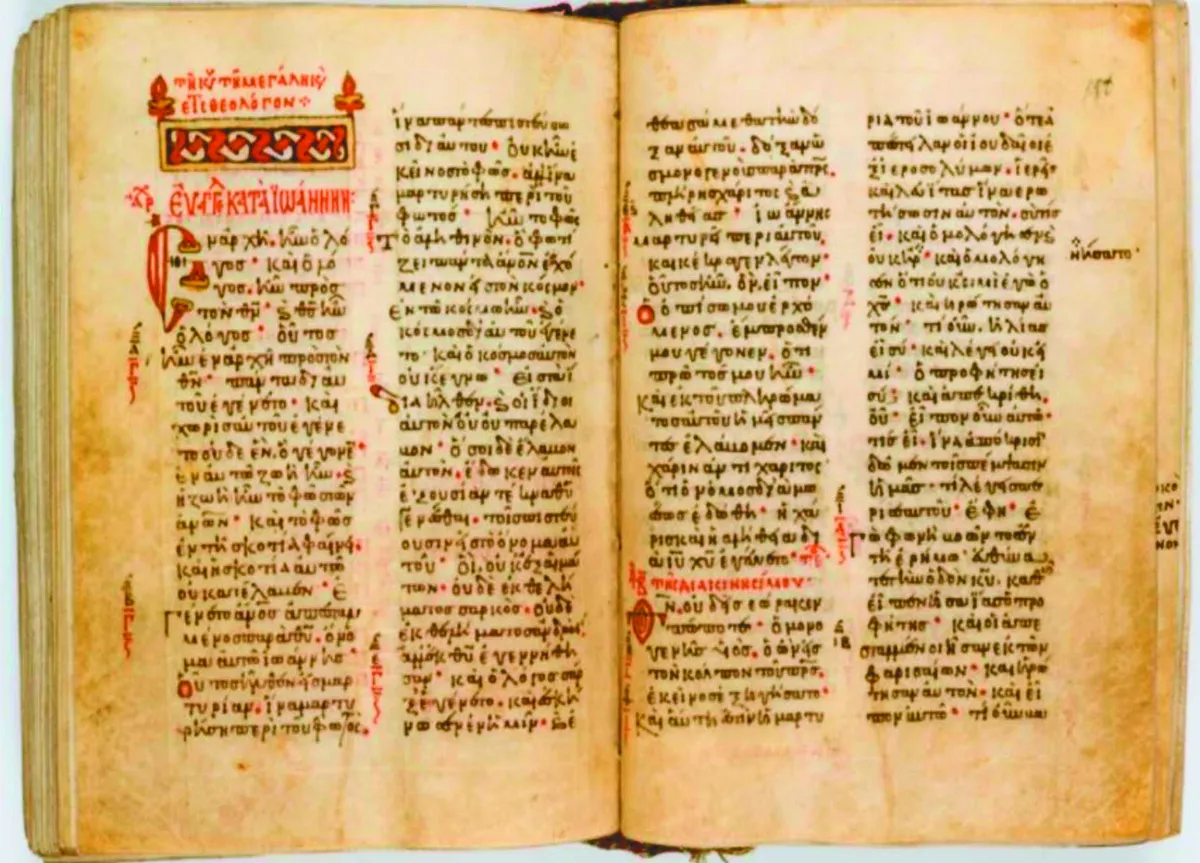 τῇ κυ τῇ μεγάλη κυ
ΕΥΑΓΓ ΚΑΤΑ ἸΩΑΝΝΗΝ
Ἐν ἀρχῆ ἦν ὁ λό
γος· καὶ ὁ λό
γος ἦν πρὸς
τὸν θν· ϗ θς ἦν
ὁ λόγος· οὗτος
ἦν ἐν ἀρχῆ πρὸς τὸν
θν· πάντα δι αὐ
τοῦ ἐγένετο· καὶ
χωρὶς αὐτοῦ ἐγένε
το οὐδὲ ἕν. ὃ γέγονεν
ἐν αὐτῶ ζωὴ ἦν. ϗ
ἡ ζωὴ ἦν τὸ φῶς τῶν
ἀνων· καὶ τὸ φῶς
ἐν τῆ σκοτία φαίνει.
καὶ ἡ σκοτία αὐτὸ
οὐ κατέλαβεν· Ἐ
γένετο ἄνος ἀπεσταλ
μένος παρὰ θυ. ὄνο
μα αὐτῶ ἰωάννης·
Οὗτος ἦλθεν εἰς μαρ
τυρίαν. ἵνα μαρτυ
ρήση περὶ τοῦ φωτός.
ἵνα πάντες πιστεύσω
σι δι αὐτοῦ· οὐκ ἦν ἐ
κεῖνος τὸ φῶς. ἀλλ ἵνα
μαρτυρήση περὶ τοῦ
φωτός· ἦν τὸ φῶς
Τὸ ἀληθινὸν. ὃ φωτί
ζει πάντα ἄνον ἐρχό
μενον εἰς τὸν κόσμον·
Ἐν τῶ κόσμω ἦν. ϗ ὁ
κόσμος δι αὐτοῦ ἐγένε
το· καὶ ὁ κόσμος αὐτὸν
οὐκ ἔγνω· εἰς τὰ ἴ
δια ἦλθεν. ϗ οἱ ἴδιοι
αὐτὸν οὐ παρέλα
βον· ὅσοι δὲ ἔλαβον
αὐτὸν. ἔδωκεν αὐτοῖς
ἐξουσίαν τέκνα θυ
γενέσθαι. τοῖς πιστεύ
ουσιν εἰς τὸ ὄνομα αὐ
τοῦ· οἳ οὐκ ἐξ αἱμά
των. οὐδὲ ἐκ θελή
ματος σαρκὸς. οὐδὲ
ἐκ θελήματος ἀνδρὸς.
ἀλλ ἐκ θυ ἐγεννήθη
σαν· καὶ ὁ λόγος σὰρ
ξ ἐγένετο. καὶ ἐσκή
νωσεν ἐν ἡμῖν. ϗ ἐ
θεασάμεθα τὴν δό
ξαν αὐτοῦ. δόξαν ὡ
ς μονογενοῦς παρὰ πρς.
πλήρης χάριτος ϗ ἀ
ληθείας· ἰωάννης
μαρτυρεῖ περὶ αὐτοῦ.
καὶ κέκραγεν λέγων.
οὗτος ἦν. ὃν εἶπον·
Ὁ ὀπίσω μου ἐρχό
μενος. ἔμπροσθέν
μου γέγονεν. ὅτι
πρῶτός μου ἦν·
Καὶ ἐκ τοῦ πληρώμα
τος αὐτοῦ ἡμεῖς πάν
τες ἐλάβομεν· καὶ
χάριν ἀντὶ χάριτος·
ὅτι ὁ νόμος διὰ μω
σέως ἐδόθη· ἡ χά
ρις καὶ ἡ ἀλήθεια δι
ὰ ιυ χυ ἐγένετο·
ΤΗΣ ΔΙΑΚΙΝΗΣΙΜΟΥ
Θν. οὐδεὶς ἑώρακεν
πώποτε· ὁ μονο
γενὴς υς. ὁ ὢν εἰς
τὸν κόλπον τοῦ πρς.
ἐκεῖνος ἐξηγήσατο·
Καὶ αὕτη ἐστὶν ἡ μαρτυ
ρία τοῦ ἰωάννου. ὅτε ἀ
πέστειλαν οἱ ἰουδαῖοι ἐ
ξ ἱεροσολύμων. ἱερεῖς
καὶ λευίτας ἵνα ἐρω
τήσωσιν αὐτὸν. σὺ τίς
εἶ. καὶ ὡμολόγησεν ϗ
οὐκ ἠρνήσατο
οὐκ ἠρ καὶ ὡμολόγη
σεν ὅτι οὐκ εἰμὶ ἐγὼ ὁ
χς· καὶ ἠρώτησαν αὐ
τὸν· τί οὖν. ἠλίας
εἶ σύ· καὶ λέγει οὐκ εἰ
μί· ὁ προφήτης εἶ
σύ; καὶ ἀπεκρίθη.
οὔ· εἶπον οὖν αὐτῶ·
τίς εἶ. ἵνα ἀπόκρισιν
δῶμεν τοῖς πέμψασιν
ἡμᾶς· τί λέγεις πε
ρὶ σεαυτοῦ· ἔφη· ἐ
γὼ φωνὴ βοῶντος ἐν
τῆ ἐρήμω· εὐθύνα
τε τὴν ὁδὸν κυ. καθὼς
εἶπεν ἡσαΐας ὁ προ
φήτης· καὶ οἱ ἀπε
σταλμένοι ἦσαν ἐκ τῶν
φαρισαίων· καὶ ἠρώ
τησαν αὐτὸν. καὶ εἶ
πον αὐτῶ· τί οὖν βα